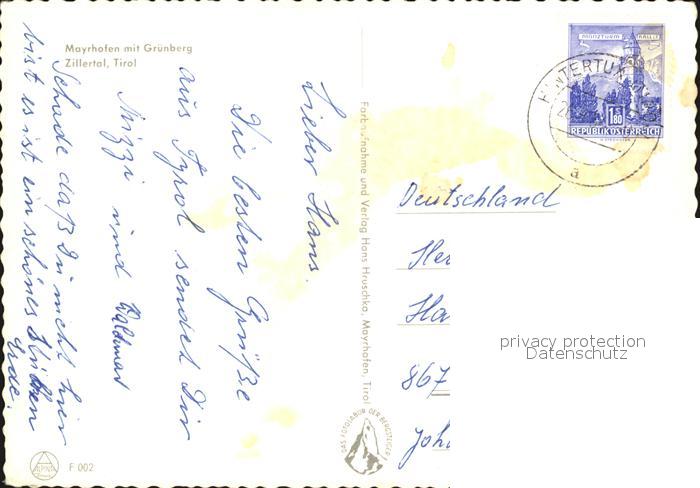 Mayrhofen mit Grünberg
Zillertal, Tirol
Lieber Hans.
Die besten Grüße
aus Tyrol sendet Dir
Mizzi und Waldemar
Schade daß Du nicht hier
bist es ist ein schönes
Erde.
Farbaufnahme und Verlag Hans Hruschka, Mayrhofen, Tirol
DAS FOTOLABOR DER BERGSTEIGER
ALPINA
F 002
MÜNZTURM HALL i.T.
1.80
REPUBLIK ÖSTERREICH
HINTERTUX
a
Deutschland
Her
Ha
867
Joh
privacy protection
Datenschutz